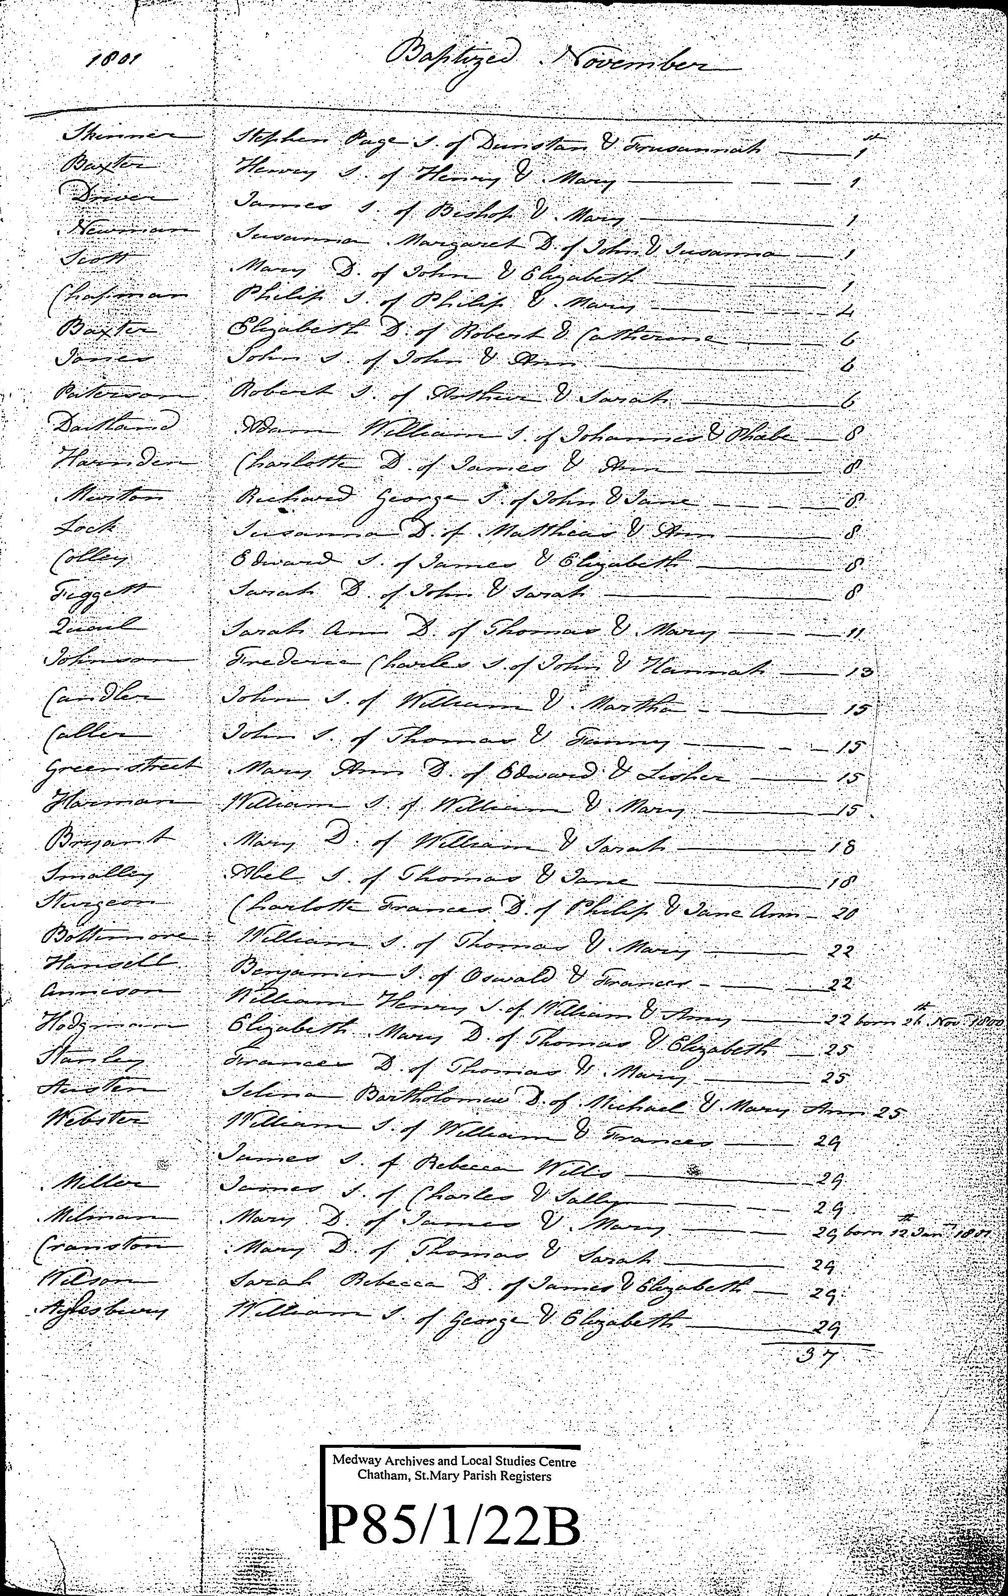 1801 Baptized November
Skinner Stephen Page S. of Dunstan & Frusannah 1st
Baxter Henry S. of Henry & Mary 1
Driver James S. of Bishop & Mary 1
Newman Susanna Margaret D. of John & Susanna 1
Scott Mary D. of John & Elizabeth 1
Chapman Philip S. of Philip & Mary 4
Baxter Elizabeth D. of Robert & Catherine 6
Jones John S. of John & Ann 6
Paterson Robert S. of Arthur & Sarah 6
Adam William S. of Johannes & Phœbe 8
Harnden Charlotte D. of James & Ann 8
Murton Richard George S. of John & Jane 8
Lock Susanna D. of Matthias & Ann 8
Colley Edward S. of James & Elizabeth 8
Figgett Sarah D. of John & Sarah 8
Sarah Ann D. of Thomas & Mary 11
Johnson Frederic Charles S. of John & Hannah 13
Candler John S. of William & Martha 15
Caller John S. of Thomas & Fanny 15
Greenstreet Mary Ann D. of Edward & 15
Harman William S. of William & Mary 15
Bryant Mary D. of William & Sarah 18
Smalley Abel S. of Thomas & Jane 18
Sturgeon Charlotte Frances D. of Philip & Jane Ann 20
Bottimore William S. of Thomas & Mary 22
Hansell Benjamin S. of Oswald & Frances 22
Annison William Henry S. of William & Amy 22 born 26th Novr 1800
Hodgman Elizabeth Mary D. of Thomas & Elizabeth 25
Stanley Frances D. of Thomas & Mary 25
Austen Selina Bartholomew D. of Michael & Mary Ann 25
Webster William S. of William & Frances 29
James S. of Rebecca Wills 29
Miller James S. of Charles & Sally 29
Milman Mary D. of James & Mary 29 born 12th Jany 1801
Cranston Mary D. of Thomas & Sarah 29
Wilson Sarah Rebecca D. of James & Elizabeth 29
Aylesbury William S. of George & Elizabeth 29
37
Medway Archives and Local Studies Centre
Chatham, St.Mary Parish Registers
P85/1/22B